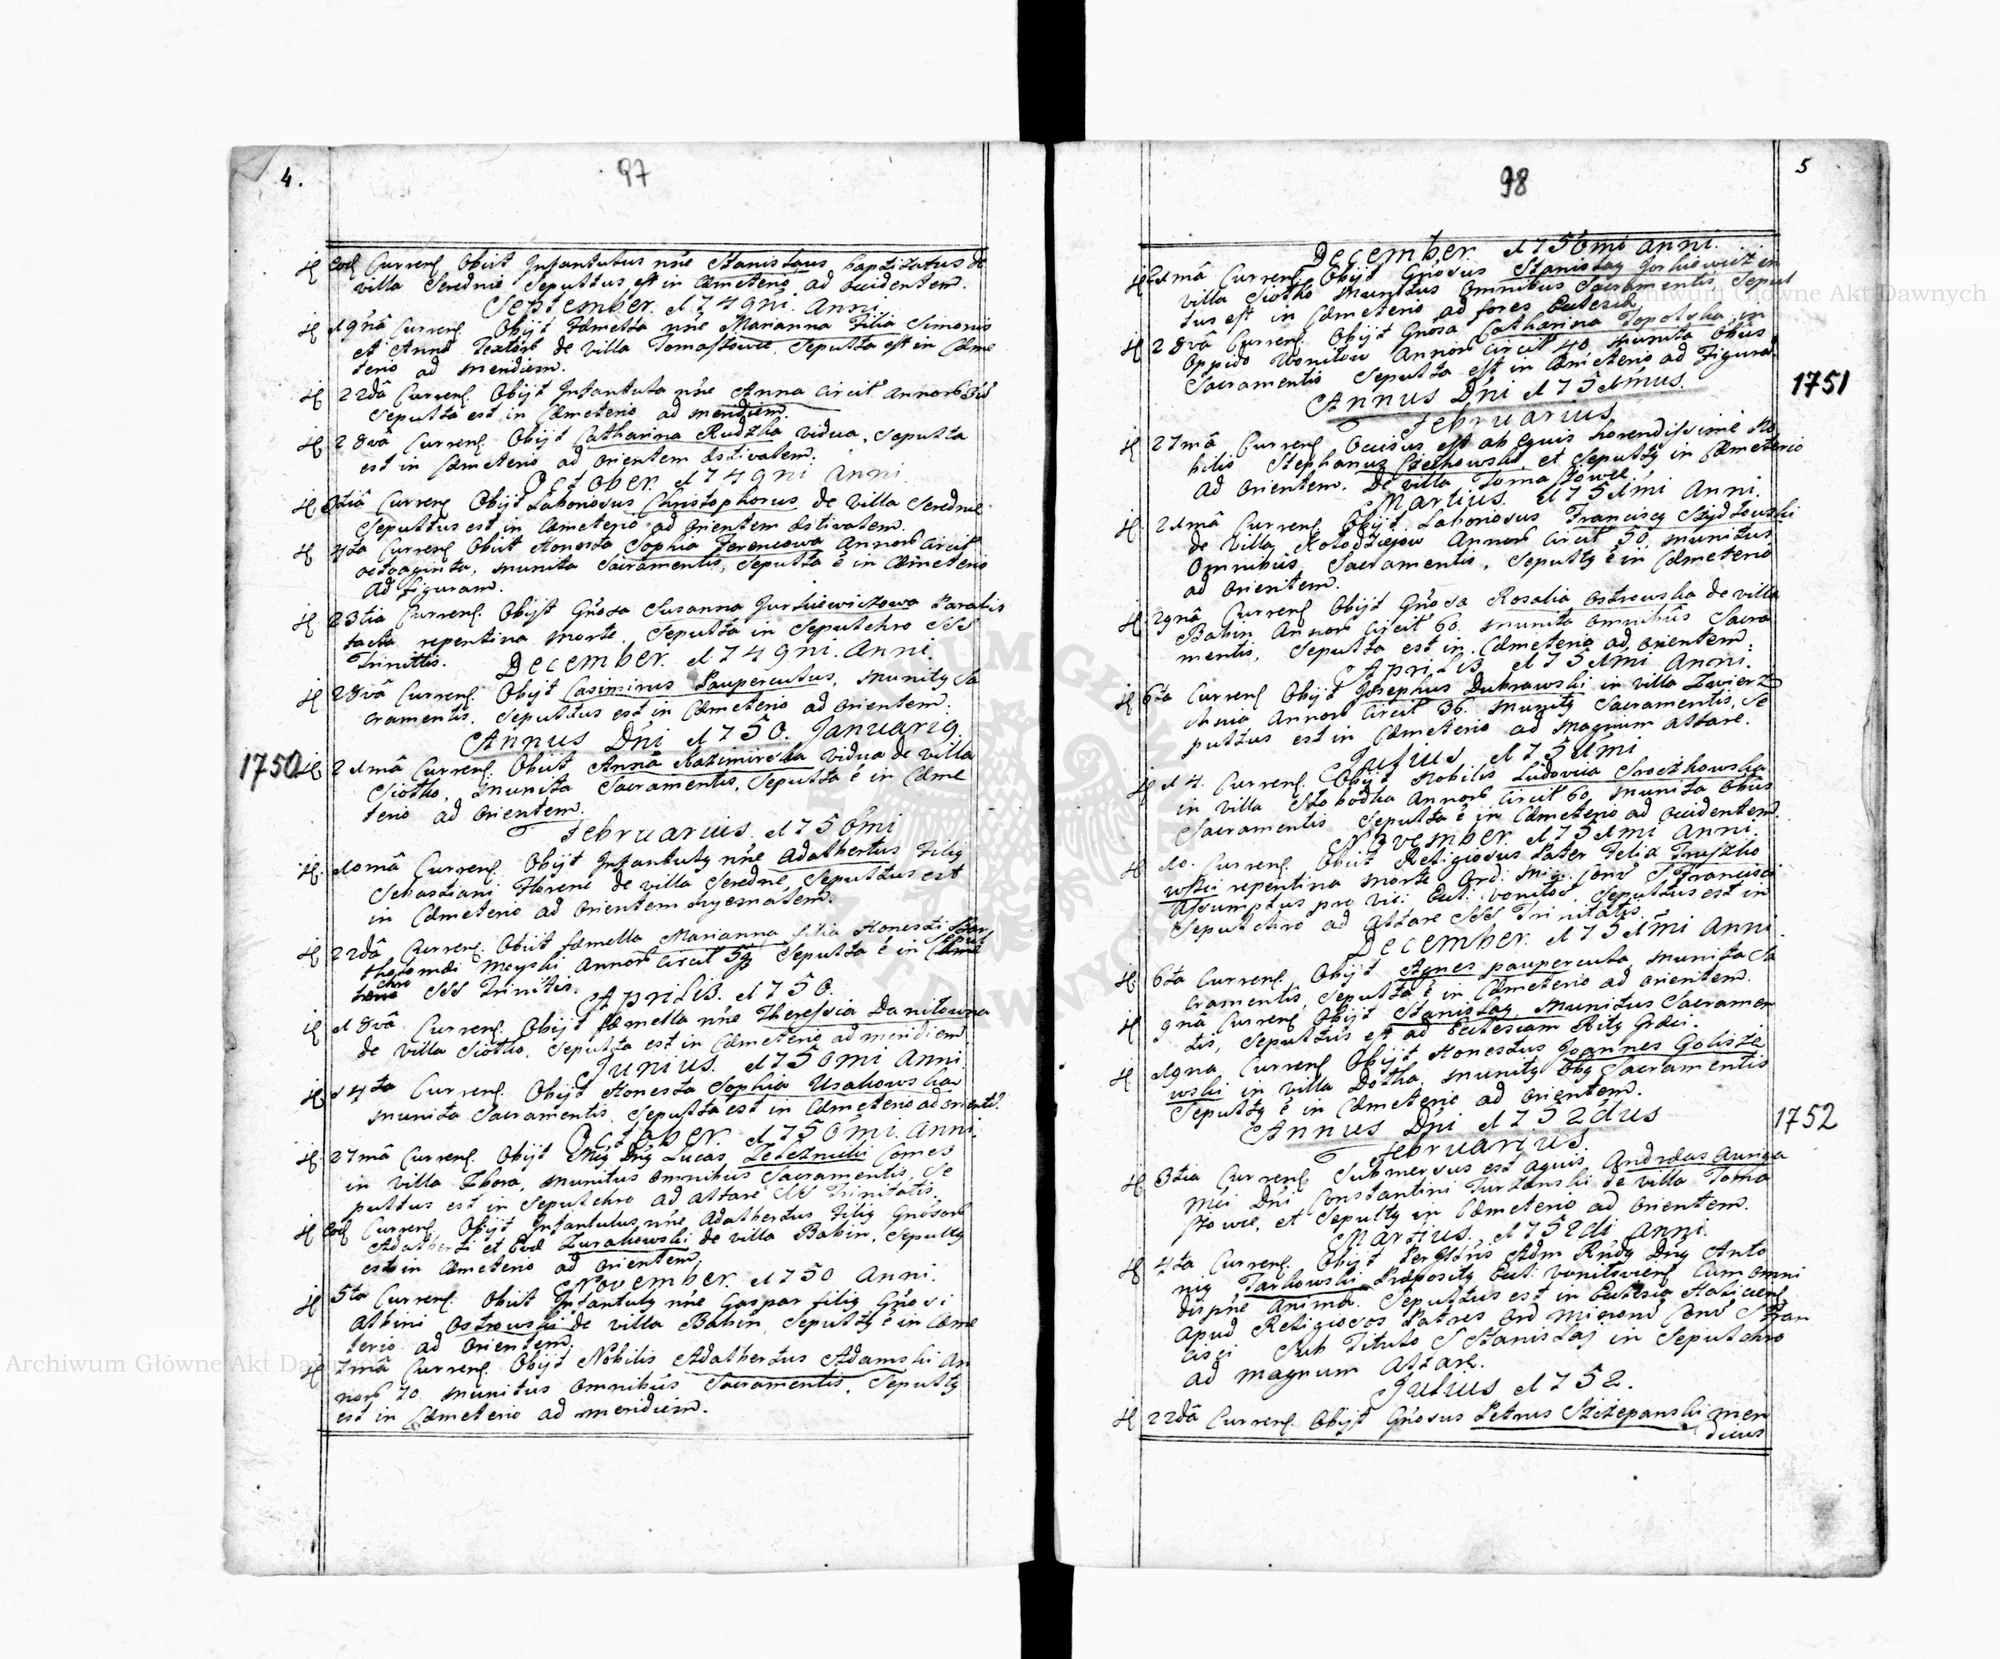 4.
97
Eod Curren Obiit Infantulus nne Stanislaus baptizatus de
villa Serednie Sepultus est in Cæmeterio ad occidentem.
September. 1749ni. Anni.
19na Curren Obijt Fæmella nne Marianna Filia Simonis
et Annæ Textoris de villa Tomaszowce, Sepulta est in Cæme
terio ad meridiem.
22da Curren. Obijt Infantula nne Anna circit annorum
Sepulta est in Cæmeterio ad meridiem.
28va Curren. Obijt Catharina Rudzka vidua, Sepulta
est in Cæmeterio ad orientem æstivalem.
October. 1749ni Anni.
3tia Curren Obijt Laboriosus Christophorus de villa Serednie
Sepultus est in Cæmeterio ad orientem æstivalem.
4ta Curren Obiit Honesta Sophia Ferencowa annorum circit
octoaginta, munita Sacramentis, Sepulta ē in Cæmeterio
ad figuram.
23tia Curren. Obijt Gnosa Susanna Jurkiewiczowa Paralis
tacta repentina morte. Sepulta in Sepulchro SSS
Trinittis.
December. 1749ni. Anni.
28va Curren Obijt Casimirus Pauperculus, munity Sa
cramentis. Sepultus est in Cæmeterio ad orientem.
Annus Dni 1750. Januarij.
1750
21ma Curren. Obiit Anna Kazimirska vidua de villa
Siołko, munita Sacramentis, Sepulta ē in Cæme
terio ad Orientem.
Februarius. 1750mi
10ma Curren. Obijt Infantuly nne Adalbertus Filiy
Sebastiani Florene de villa Seredne, Sepultus est
in Cæmeterio ad orientem hyemalem.
22da Curren. Obiit fæmella Marianna filia Honesti Bar
tholomæi Mayski annorum circit Sepulta ē in Sepul
chro SSS Trinitis.
Aprilis. 1750.
18va Curren. Obijt fæmella nne Theressia Daniłowna
de villa Siołko. Sepulta est in Cæmeterio ad meridiem.
Junius. 1750mi Anni.
14ta Curren. Obijt Honesta Sophia Usakowska
munita Sacramentis. Sepulta est in Cæmeterio ad orientē.
October. 1750mi. Anni.
27ma Curren. Obijt Mig Dng Lucas Zeleznicki Comes
in villa Zbora, munitus omnibus Sacramentis, Se
pultus est in Sepulchro ad altare SSS Trinitatis.
Eod Curren Obijt Infantulus nne Adalbertus Filiy Gnosorum
Adalberti et Evæ Zurakowski de villa Babin, Sepulty
est in Cæmeterio ad orientem.
November. 1750 Anni.
5ta Curren. Obiit Infantuly nne Gaspar filiy Gnosi
Albini Ostrowski de villa Babin, Sepulty ē in Cæme
terio ad Orientem.
7ma Curren. Obijt Nobilis Adalbertus Adamski An
norum 70 munitus omnibus Sacramentis, Sepulty
est in Cæmeterio ad meridiem.
98
5
December. 1750mi anni.
21ma Curren. Obijt Gnosus Stanislay Jorkiewicz in
villa Siołko munitus omnibus Sacramentis, Sepul
tus est in Cæmeterio ad fores Ecclesiæ.
28va Curren. Obijt Gnosa Catharina Topolska, in
Oppido Woniłow Annorum circit 40 munita Obus
Sacramentis Sepulta est in Cæmeterio ad Figuram.
Annus Dni 1751mus.
1751
Februarius
27ma Curren Occisus est ab equis horendissime No
bilis Stephanus Czechowski, et Sepulty in Cæmeterio
ad orientem. De villa Tomaszowce.
Martius. 1751mi Anni.
21ma Curren. Obijt. Laboriosus Franciscy Szydłowski
de villa Kołodziejow Annorum circit 50, munitus
Omnibus Sacramentis, Sepulty ē in Cæmeterio
ad orientem.
29na Curren Obijt Gnosa Rosalia Ostrowska de villa
Babin Annorum circit 60. munita omnibus Sacra
mentis, Sepulta est in Cæmeterio ad orientem.
Aprilis 1751mi Anni.
6ta Curren Obijt Josephus Dubrawski in villa Zwierz
chnia annorum circit 36. munity Sacramentis, Se
pultus est in Cæmeterio ad magnum altare.
Julius 1751mi
14. Curren. Obijt Nobilis Ludovica Sroczkowska
in villa Słobodka annorum circit 60, munita Obus
Sacramentis Sepulta ē in Cæmeterio ad occidentem.
November. 1751mi Anni.
10. Curren. Obiit Religiosus Pater Felix Truszko
wski repentina morte Ord: Mi: Conv S Francisci
assumptus pro vic: Eccl: Woniłow, Sepultus est in
Sepulchro ad altare SSS Trinitatis.
December. 1751mi Anni.
6ta Curren. Obijt Agnes paupercula munita Sa
cramentis, Sepulta ē in Cæmeterio ad orientem.
9na Curren Obijt Stanislay, munitus Sacramen
tis, Sepultus est ad Ecclesiam Rity Græci.
19na Curren Obijt Honestus Joannes Golisze
wski in villa Dołha, munity Obg Sacramentis
Sepulty ē in Cæmeterio ad orientem.
Annus Dni 1752dus
1752
Februarius.
3tia Curren. Submersus est aquis Andreas auriga
Mci Dni Constantini Turzanski de villa Toma
szowce, et Sepulty in Cæmeterio ad orientem.
Martius. 1752di Anni.
4ta Curren. Obijt Perillris Adm Rndy Dny Anto
niy Tarkowski Præposity Eccl: Woniłovien Cum omni
dispne animæ. Sepultus est in Ecclesia Haliciens
apud Religiosos Patres Ord Minorum Conv S Fran
cisci Sub Titulo S Stanislay in Sepulchro
ad magnum altare.
Julius 1752.
22da Curren. Obijt Gnosus Petrus Szczepanski men
dicus
Archiwum Główne Akt Dawnych